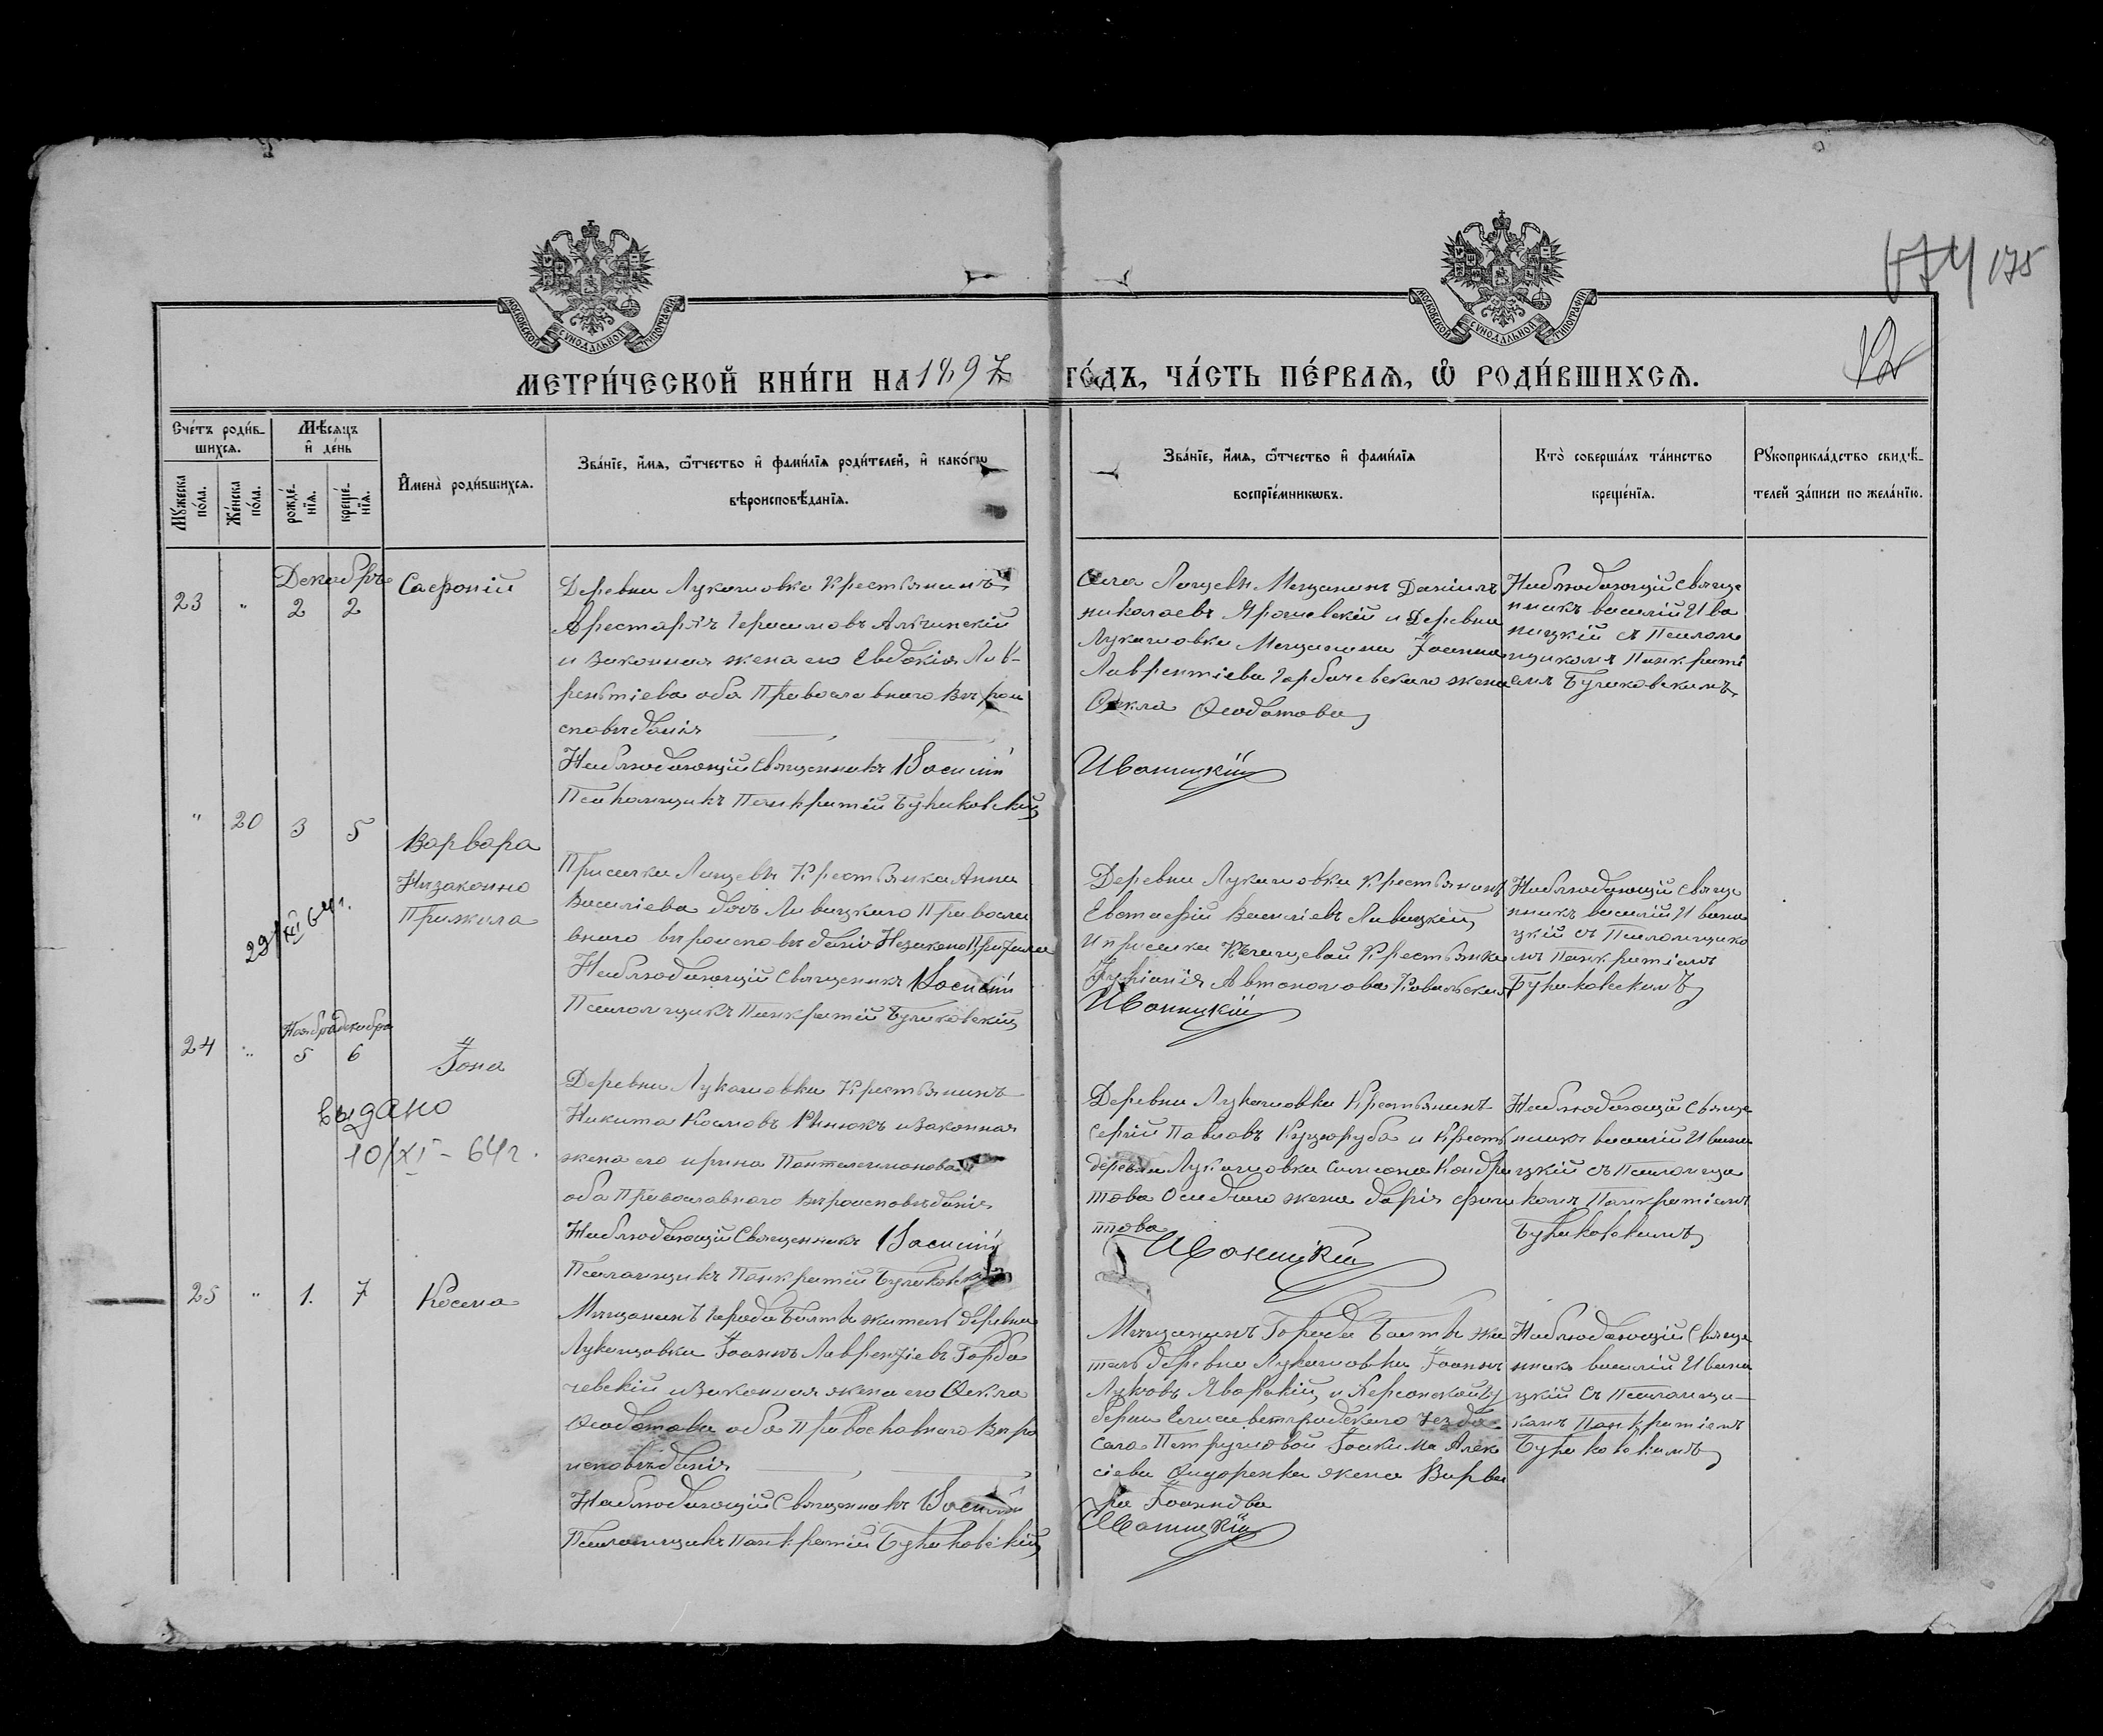 МОСКОВСКОЙ СѴНОДАЛЬНОЙ ТИПОГРАФІИ
МОСКОВСКОЙ СѴНОДАЛЬНОЙ ТИПОГРАФІИ
174 175
12
МЕТРИ́ЧЕСКОЙ КНИ́ГИ НА 1897 ГО́ДЪ, ЧА́СТЬ ПЕ́РВАѦ, Ѽ РОДИ́ВШИХСѦ.
Сче́тъ роди́в-
шихсѧ.
Мꙋ́жеска по́ла.
Же́нска по́ла.
Мѣ́сѧцъ и҆ де́нь
рожде́-нїѧ.
креще́-нїѧ.
И҆мена̀ роди́вшихсѧ.
Зва́нїе, и҆́мѧ, ѻ҆́тчество и҆ фами́лїѧ роди́телей, и҆ како́гѡ
вѣроисповѣ́данїѧ.
Зва́нїе, и҆́мѧ, ѻ҆́тчество и҆ фами́лїѧ
воспрїе́мникѡвъ.
Кто̀ соверша́лъ та́инство
креще́нїѧ.
Рꙋкоприкла́дство свидѣ́-
телей за́писи по жела́нїю.
Декабрь
23 " 2 2 Сафроній
Деревни Лукашовки Крестьянинъ
Аристархъ Герасимовъ
и законная жена его Евдокія Лав-
рентіева оба Православнаго вѣрои
сповѣданія
Наблюдающій Священникъ Василій
Псаломщикъ Панкратій Буриковскій
Мещанинъ Даніилъ
николаевъ Ярошевскій и Деревни
Лукашовки Мещанина Іоанна
Лаврентіева Горбачевскаго жена
Ѳекла Ѳеодотова
Иваницкій
Наблюдающій Свяще
нникъ василій Ива
ницкій съ Псалом
щикомъ Панкраті
емъ Буриковскимъ
" 20 3 5 Варвара
Незаконно
Прижита
29/XI 64 г.
Крестьянка Анна
Василіева дочь Ливицкаго Правосла
внаго вѣроисповѣданія Незаконо Прижила
Наблюдающій Священникъ Василій
Псаломщикъ Панкратій Буриковскій
Деревни Лукашовки Крестьянинъ
Евстафій Василіевъ Ливицкій
Крестьянка
Автономова
Иваницкій
Наблюдающій Свяще
нникъ василій Ивани
цкій съ Псаломщико
мъ Панкратіемъ
Буриковскимъ
Ноября декабря
24 " 5 6 Іона
выдано
10/XI - 64 г.
Деревни Лукашовки Крестьянинъ
Никита Космовъ и законная
жена его ирина Пантелеимонова
оба Православнаго Вѣроисповѣданія
Наблюдающій Священникъ Василій
Псаломщикъ Панкратій Буриковскій
Деревни Лукашовки Крестьянинъ
Сергій Павловъ Куцоруба и Крест
деревни Лукашовки Симеона Кондра
това жена дарія фили
ппова
Иваницкій
Наблюдающій Свяще
нникъ василій Ивани
цкій съ Псаломщи
комъ Панкратіемъ
Буриковскимъ
25 " 1. 7 Косма
Мѣщанинъ города Балты житель деревни
Лукашовки Іоаннъ Лаврентіевъ Горба
чевскій и законная жена его Ѳекла
Ѳеодотова оба Православнаго Вѣро
исповѣданія
Наблюдающій Священникъ Василій
Псаломщикъ Панкратій Буриковскій
Мѣщанинъ Города Балты жи
тель деревни Лукашовки Іоаннъ
Луковъ Яворскій, и Херсонской гу
берніи Елисаветградскаго уезда
села Іоакима Алек
сіева Сидоренка жена Варва
ра Іоаннова
Иваницкій
Наблюдающій Свяще
нникъ василій Ивани
цкій съ Псаломщи-
комъ Панкратіемъ
Буриковскимъ